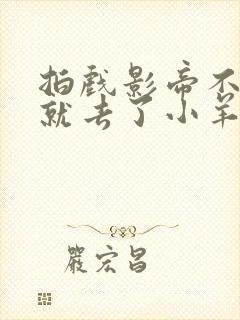 拍戏影帝不
就去了小羊
严宏昌